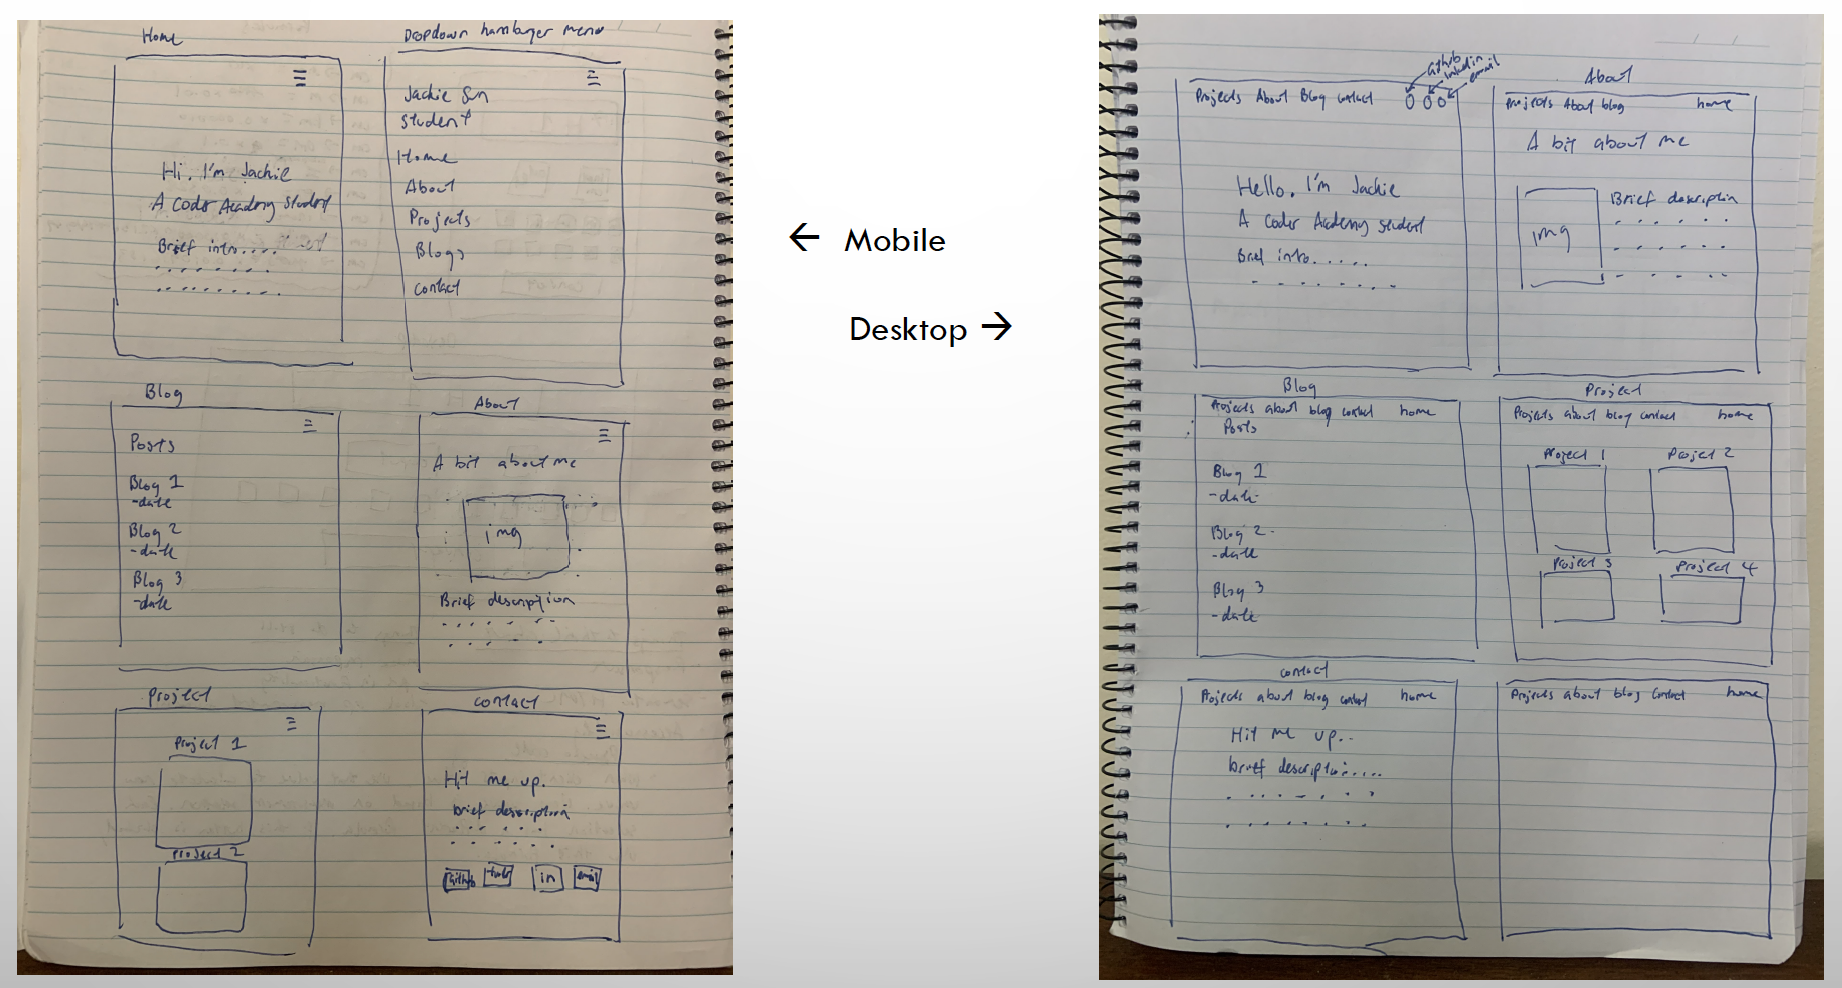 Home
Hi, I'm Jackie
A Coder Academy student
Brief intro....
Dropdown hamburger menu
Jackie Sun
student
Home
About
Projects
Blogs
contact
Blog
Posts
Blog 1
-date
Blog 2
-date
Blog 3
-date
About
A bit about me
img
Brief description
Project
Project 1
Project 2
contact
Hit me up.
brief description
github
in
email
← Mobile
Desktop →
github
linkedin
email
Projects About Blog contact
Hello. I'm Jackie
A Coder Academy student
Brief intro.....
About
Projects About blog home
A bit about me
img
Brief description
Blog
Projects about blog contact home
Posts
Blog 1
-date
Blog 2
-date
Blog 3
-date
Project
Projects about blog contact home
Project 1
Project 2
Project 3
Project 4
contact
Projects about blog contact home
Hit me up..
brief description....
Projects about blog contact home